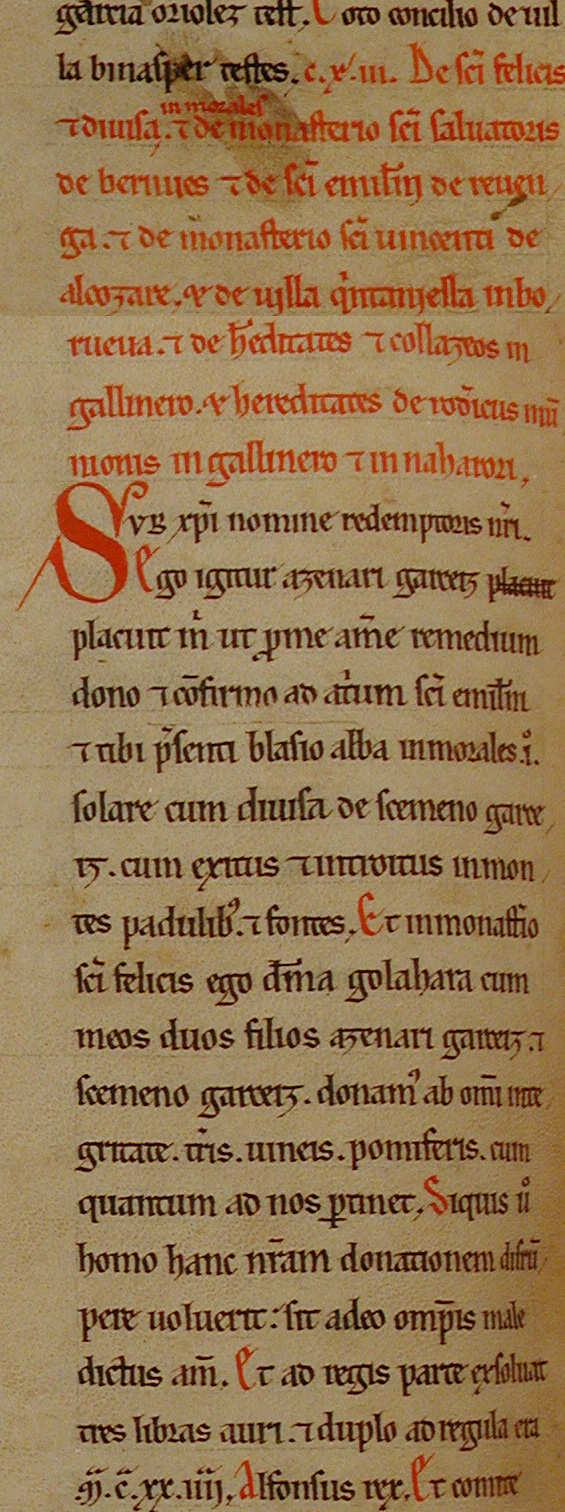 garcia oriolez test̄. Toto concilio de uil
la binasper testes. c.xͦ.iii. De sc̄i felicis
in morales
⁊ diuisa. ⁊ de monasterio sc̄i saluatoris
de berriues ⁊ de sc̄i emil̄ni de reuen
ga. ⁊ de monasterio sc̄i uincentii de
alcozare. & de uilla q̍ntaniella in bo
rueua. ⁊ de h̄editates ⁊ collazeos in
gallinero. & hereditates de rod̄icus mu
nionis in gallinero ⁊ in naharori.
Svb xp̄i nomine redemptoris nr̄i.
Ego igitur azenari garceiz
placuit m̍ ut ꝓ me am̄e remedium
dono ⁊ cōfirmo ad atrium sc̄i emil̄ni
⁊ tibi p̄senti blasio abb̄a in morales .i.
solare cum diuisa de scemeno garce
iz. cum exitus ⁊ introitus in mon
tes padulibꝰ. ⁊ fontes. Et in monast̄io
sc̄i felicis ego dm̄a golahara cum
meos duos filios azenari garceiz. ⁊
scemeno garceiz. donamꝰ ab om̄i inte
gritate. tr̄is. uineis. pomiferis. cum
quantum ad nos ꝑtinet. Siquis uͦ
homo hanc nr̄am donationem disrū
pere uoluerit: sit a deo omp̄is male
dictus am̄. Et ad regis parte exsoluat
tres libras auri. ⁊ duplo ad regula era
.M̄.c̄.xx.iiii. Alfonsus rex. Et comite